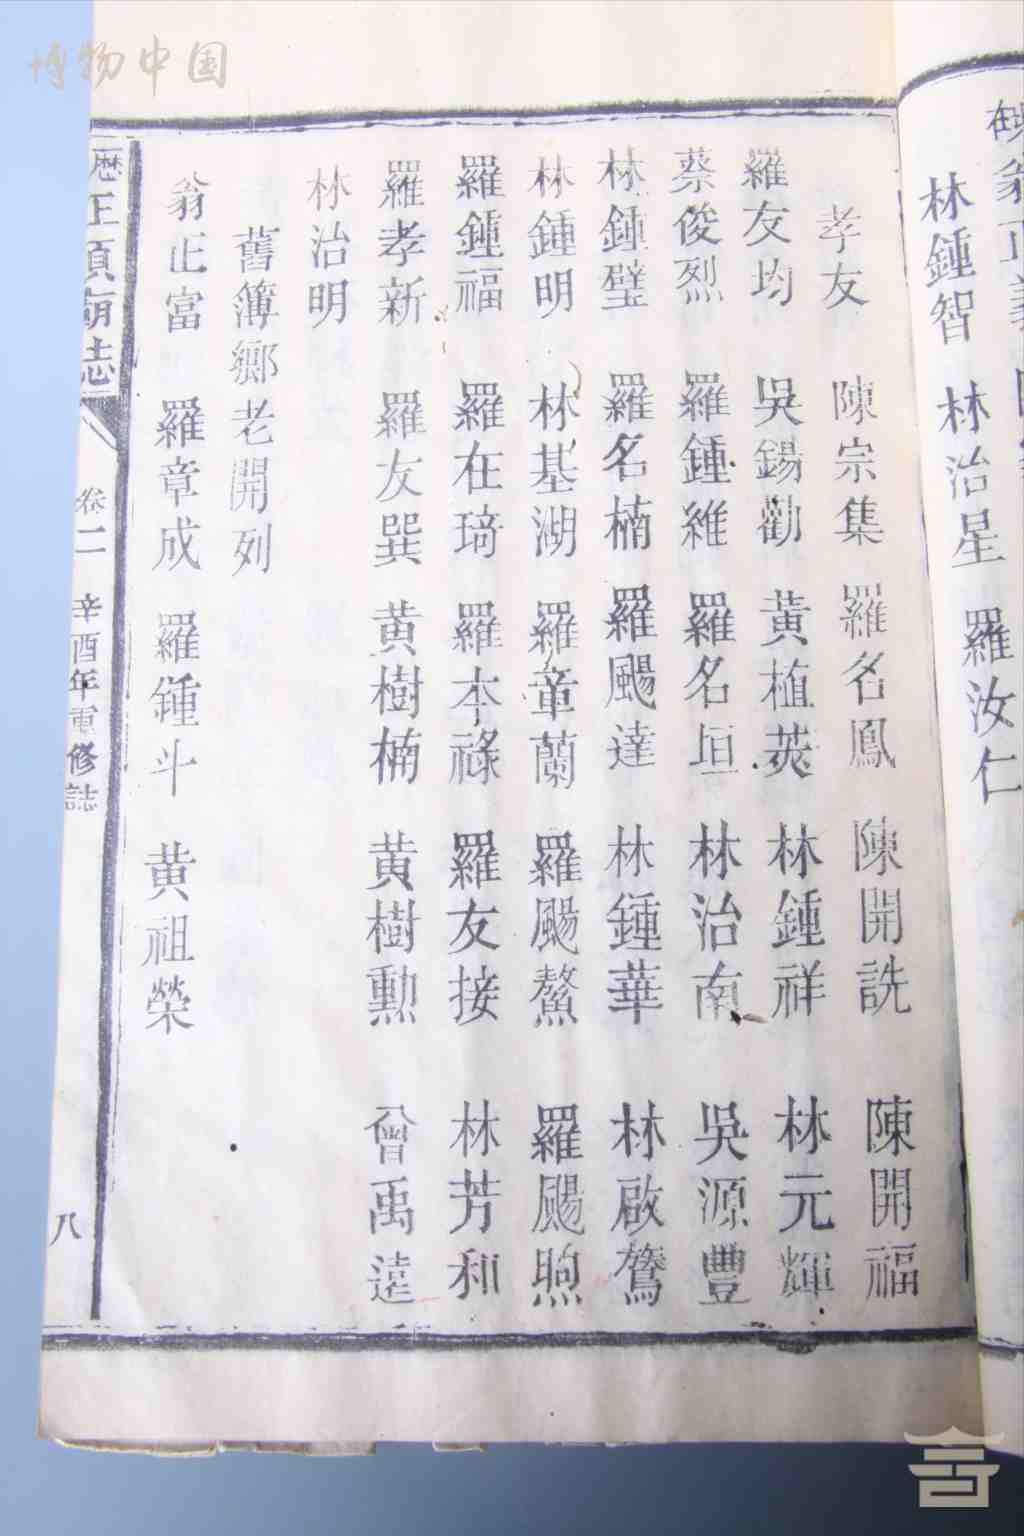 林鍾智 林治星 羅汝仁
孝友 陳宗集 羅名鳳 陳開詵 陳開福
羅友均 吳錫勸 黃植莢 林鍾祥 林元輝
蔡俊烈 羅鍾維 羅名垣 林治南 吳源豐
林鍾璧 羅名楠 羅颺達 林鍾華 林啟鶩
林鍾明 林基湖 羅章蘭 羅颺鰲 羅颺煦
羅鍾福 羅在琦 羅本祿 羅友接 林芳和
羅孝新 羅友巽 黃樹楠 黃樹勳 曾禹逵
林治明
舊簿鄉老開列
翁正富 羅章成 羅鍾斗 黃祖榮
歷正順廟志 卷二 辛酉年重修誌 八
博物中国